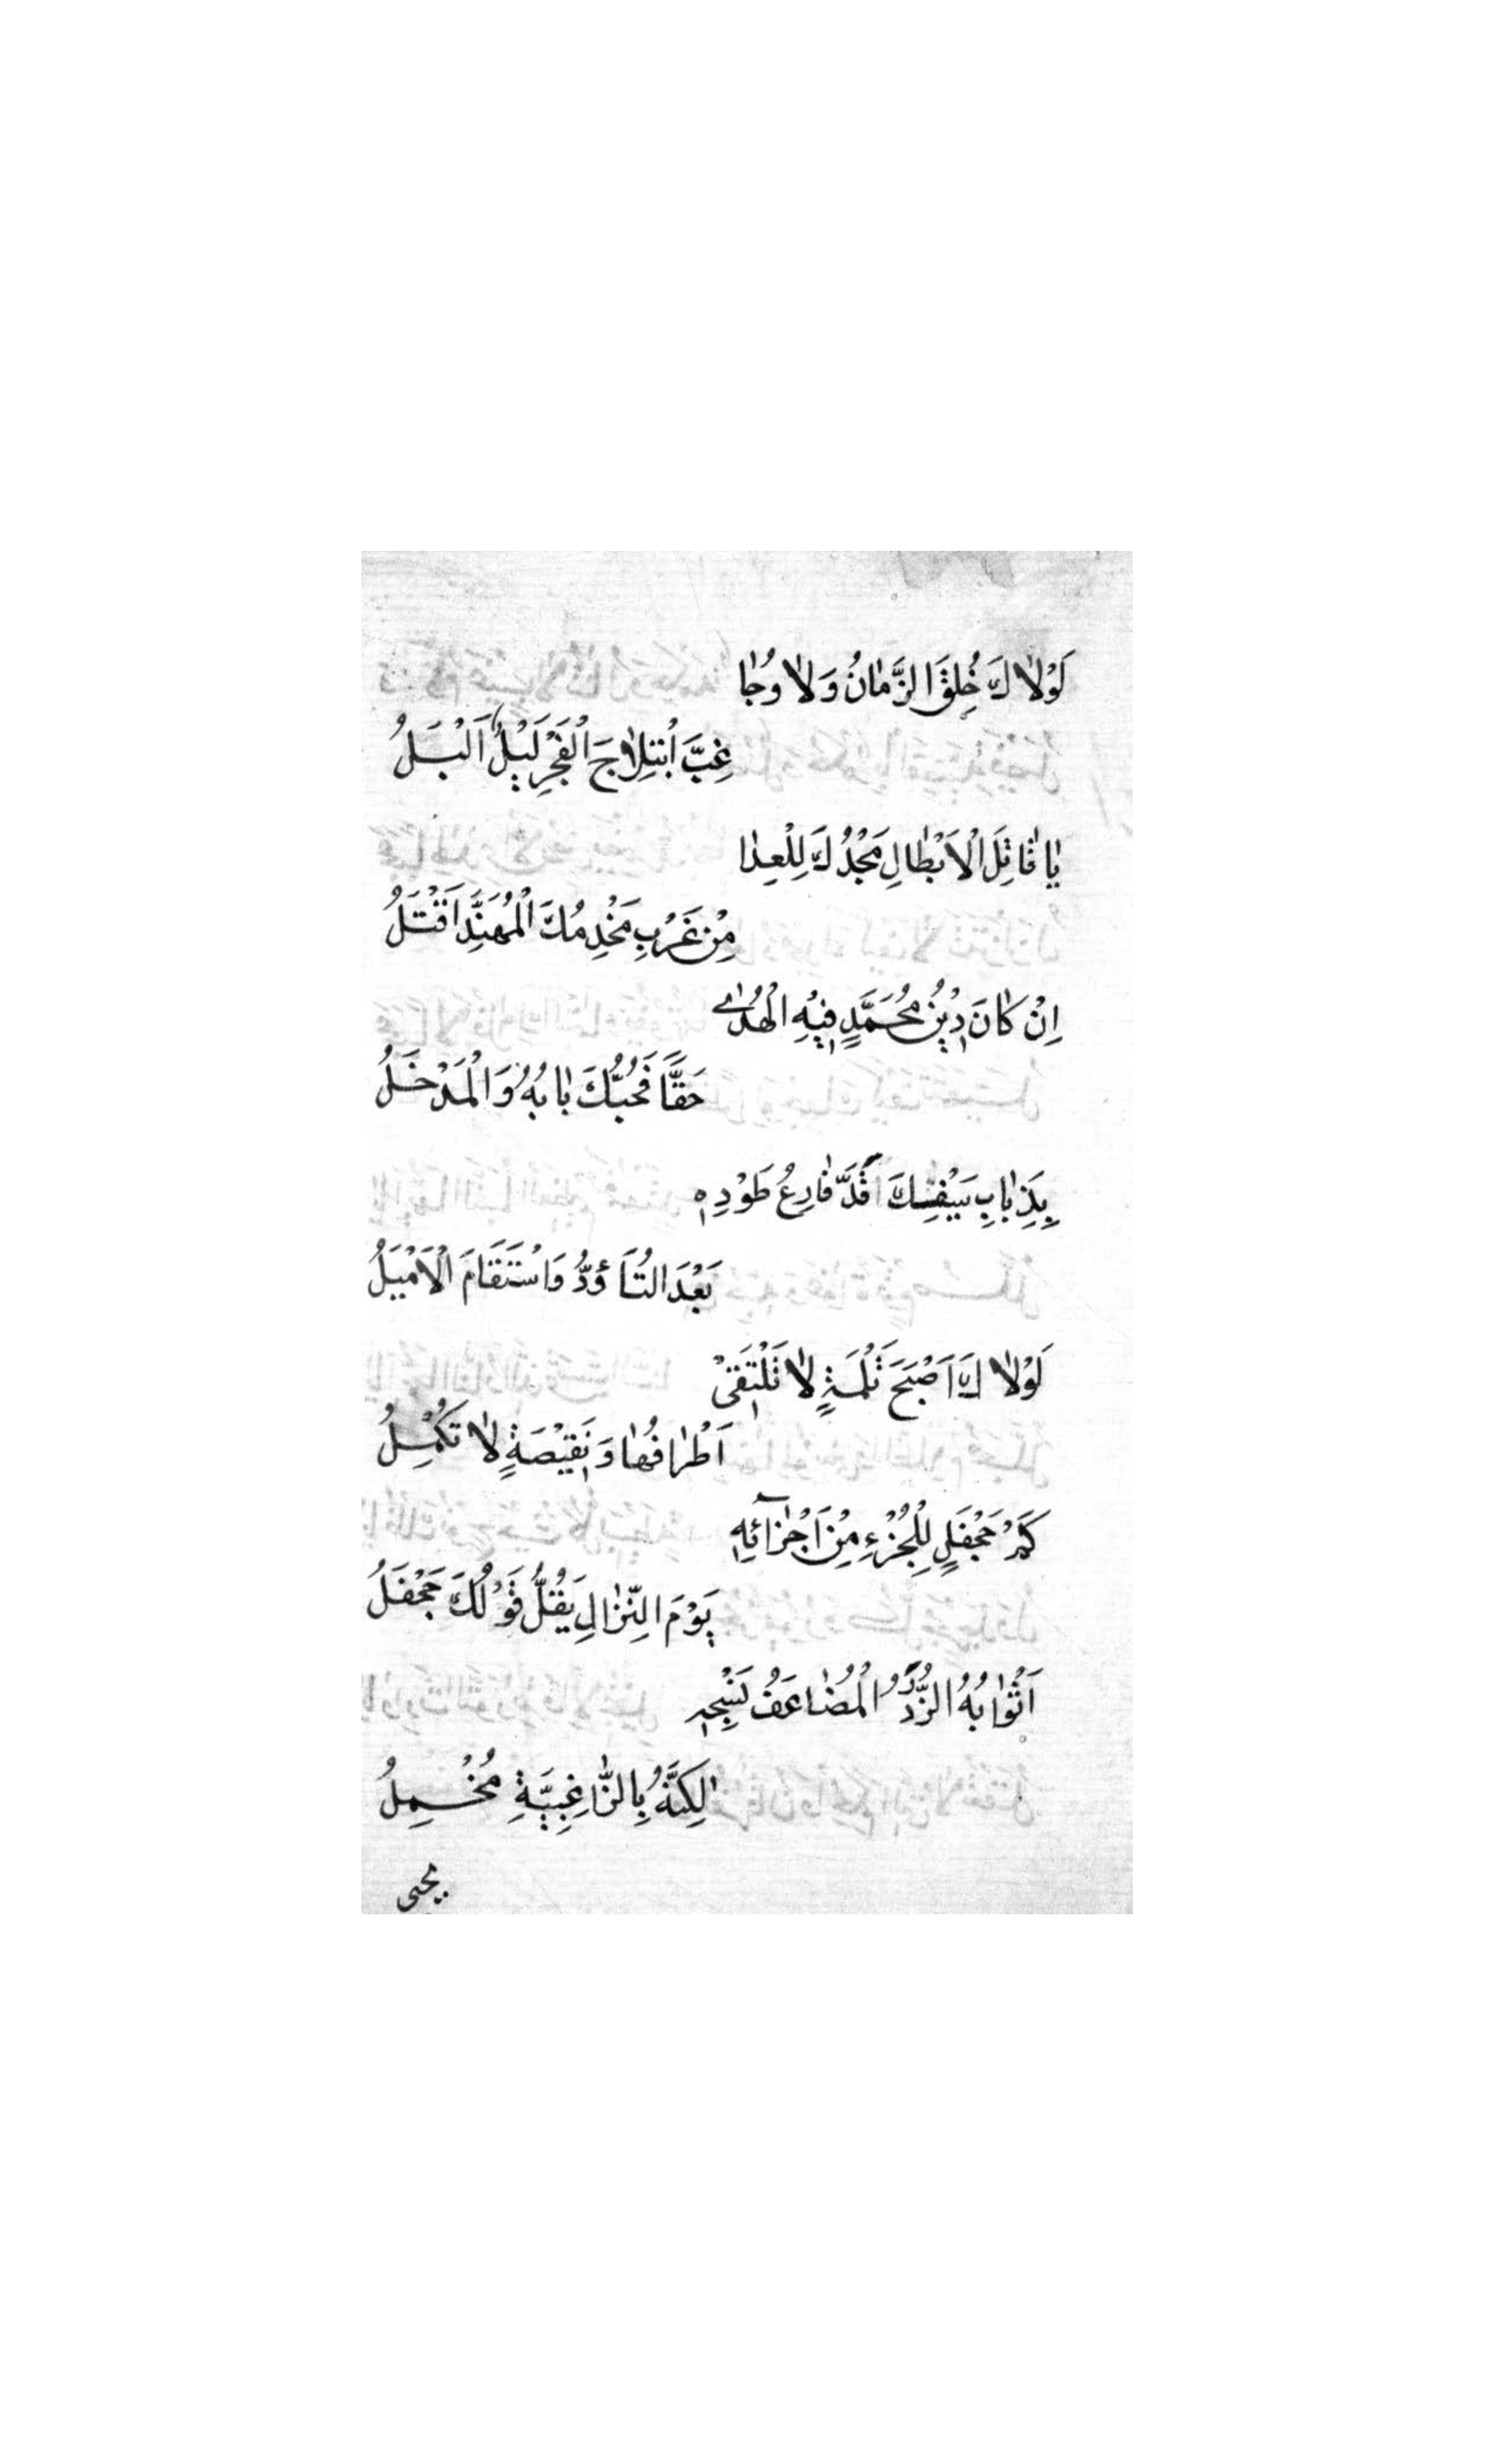 لَوْلاٰكَ خُلِقَ الزَّمٰانُ وَلاٰ وُجٰا
غِبَّ اُبْتِلاٰجَ الْفَجْرِ لَيْلٌ اَلْيَلُ
يٰا قٰاتِلَ الْاَبْطٰالِ مَجْدُكَ لِلْعِدٰا
مِنْ غَرْبِ مَخْدِمُكَ الْمُهَنَّدِ اَقْتَلُ
اِنْ كٰانَ دِيْنُ مُحَمَّدٍ فِيْهِ الْهُدٰى
حَقًّا فَحُبُّكَ بٰابُهُ وَالْمَدْخَلُ
بِذِبٰابِ سَيْفِكَ قَدَّ فٰارِعُ طَوْدِهِ
بَعْدَ التَّأَوُّدُ وَاسْتَقٰامَ الْاَمْيَلُ
لَوْلاٰكَ اَصْبَحَ ثَلْمَةٍ لاٰ تَلْتَقِىْ
اَطْرٰافُهٰا وَنَقِيْصَةٍ لاٰ تَكْمُلُ
كَمْ جَحْفَلٍ لِلْجُزْءِ مِنْ اَجْزٰآئِهِ
يَوْمَ النِّزٰالِ يَقُلُّ قَوْلُكَ جَحْفَلُ
اَثْوٰابُهُ الزُّرَدُ الْمُضٰاعَفُ نَسْجِهِ
لٰكِنَّهُ بِالزّٰاغِبِيَّةِ مُخْمِلُ
يحيى